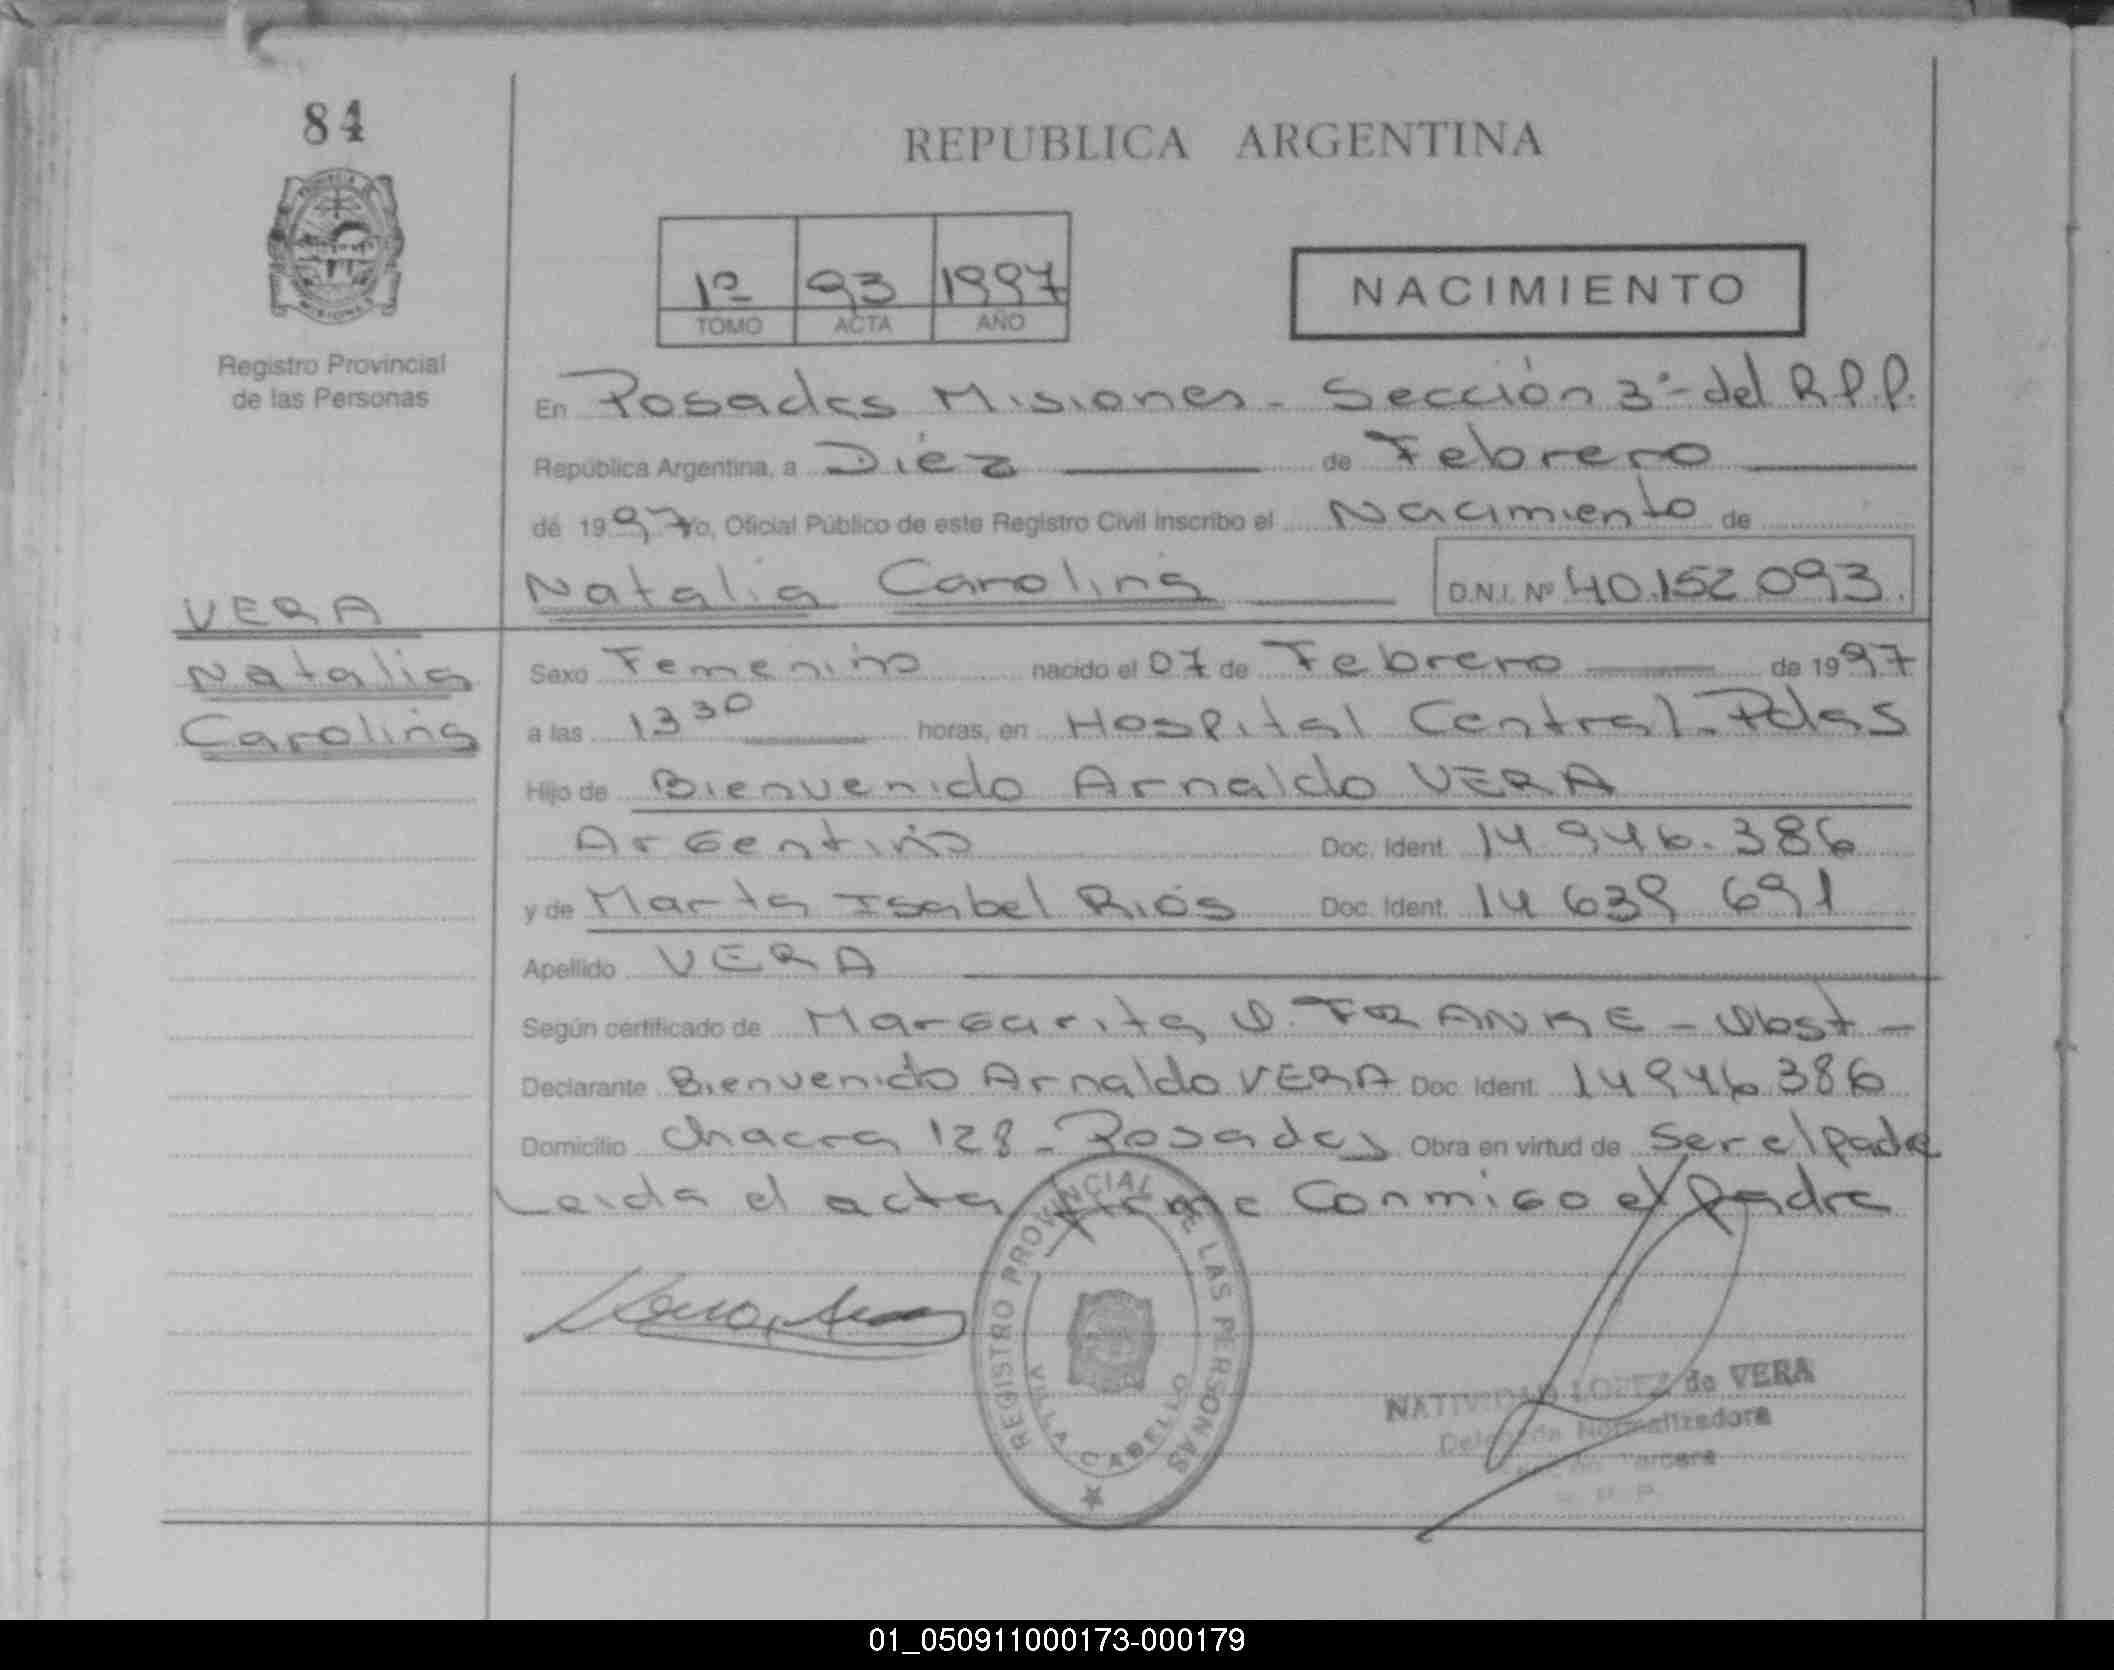 84
REPUBLICA ARGENTINA
1º 93 1997
TOMO ACTA AÑO
NACIMIENTO
Registro Provincial
de las Personas
En Posadas Misiones - Sección 3º - del R.P.P.
República Argentina, a Diez de Febrero
de 1997 Yo, Oficial Público de este Registro Civil inscribo el Nacimiento de
Natalia Carolina D.N.I. Nº 40.152.093.
VERA
Natalia
Carolina
Sexo Femenino nacido el 07 de Febrero de 1997
a las 13 30 horas, en Hospital Central - Pdas
Hijo de Bienvenido Arnaldo VERA
Argentino Doc. Ident. 14.946.386
y de Marta Isabel Ríos Doc. Ident. 14 639 691
Apellido VERA
Según certificado de Margarita O. FRANKE - Obst -
Declarante Bienvenido Arnaldo VERA Doc. Ident. 14946386
Domicilio Chacra 128 - Posadas Obra en virtud de Ser el padre
Leida el acta firme Conmigo el padre
REGISTRO PROVINCIAL DE LAS PERSONAS
VILLA CABELLO
NATIVIDAD LOPEZ de VERA
Delegada Normalizadora
Tercera
R. P. P.
01_050911000173-000179